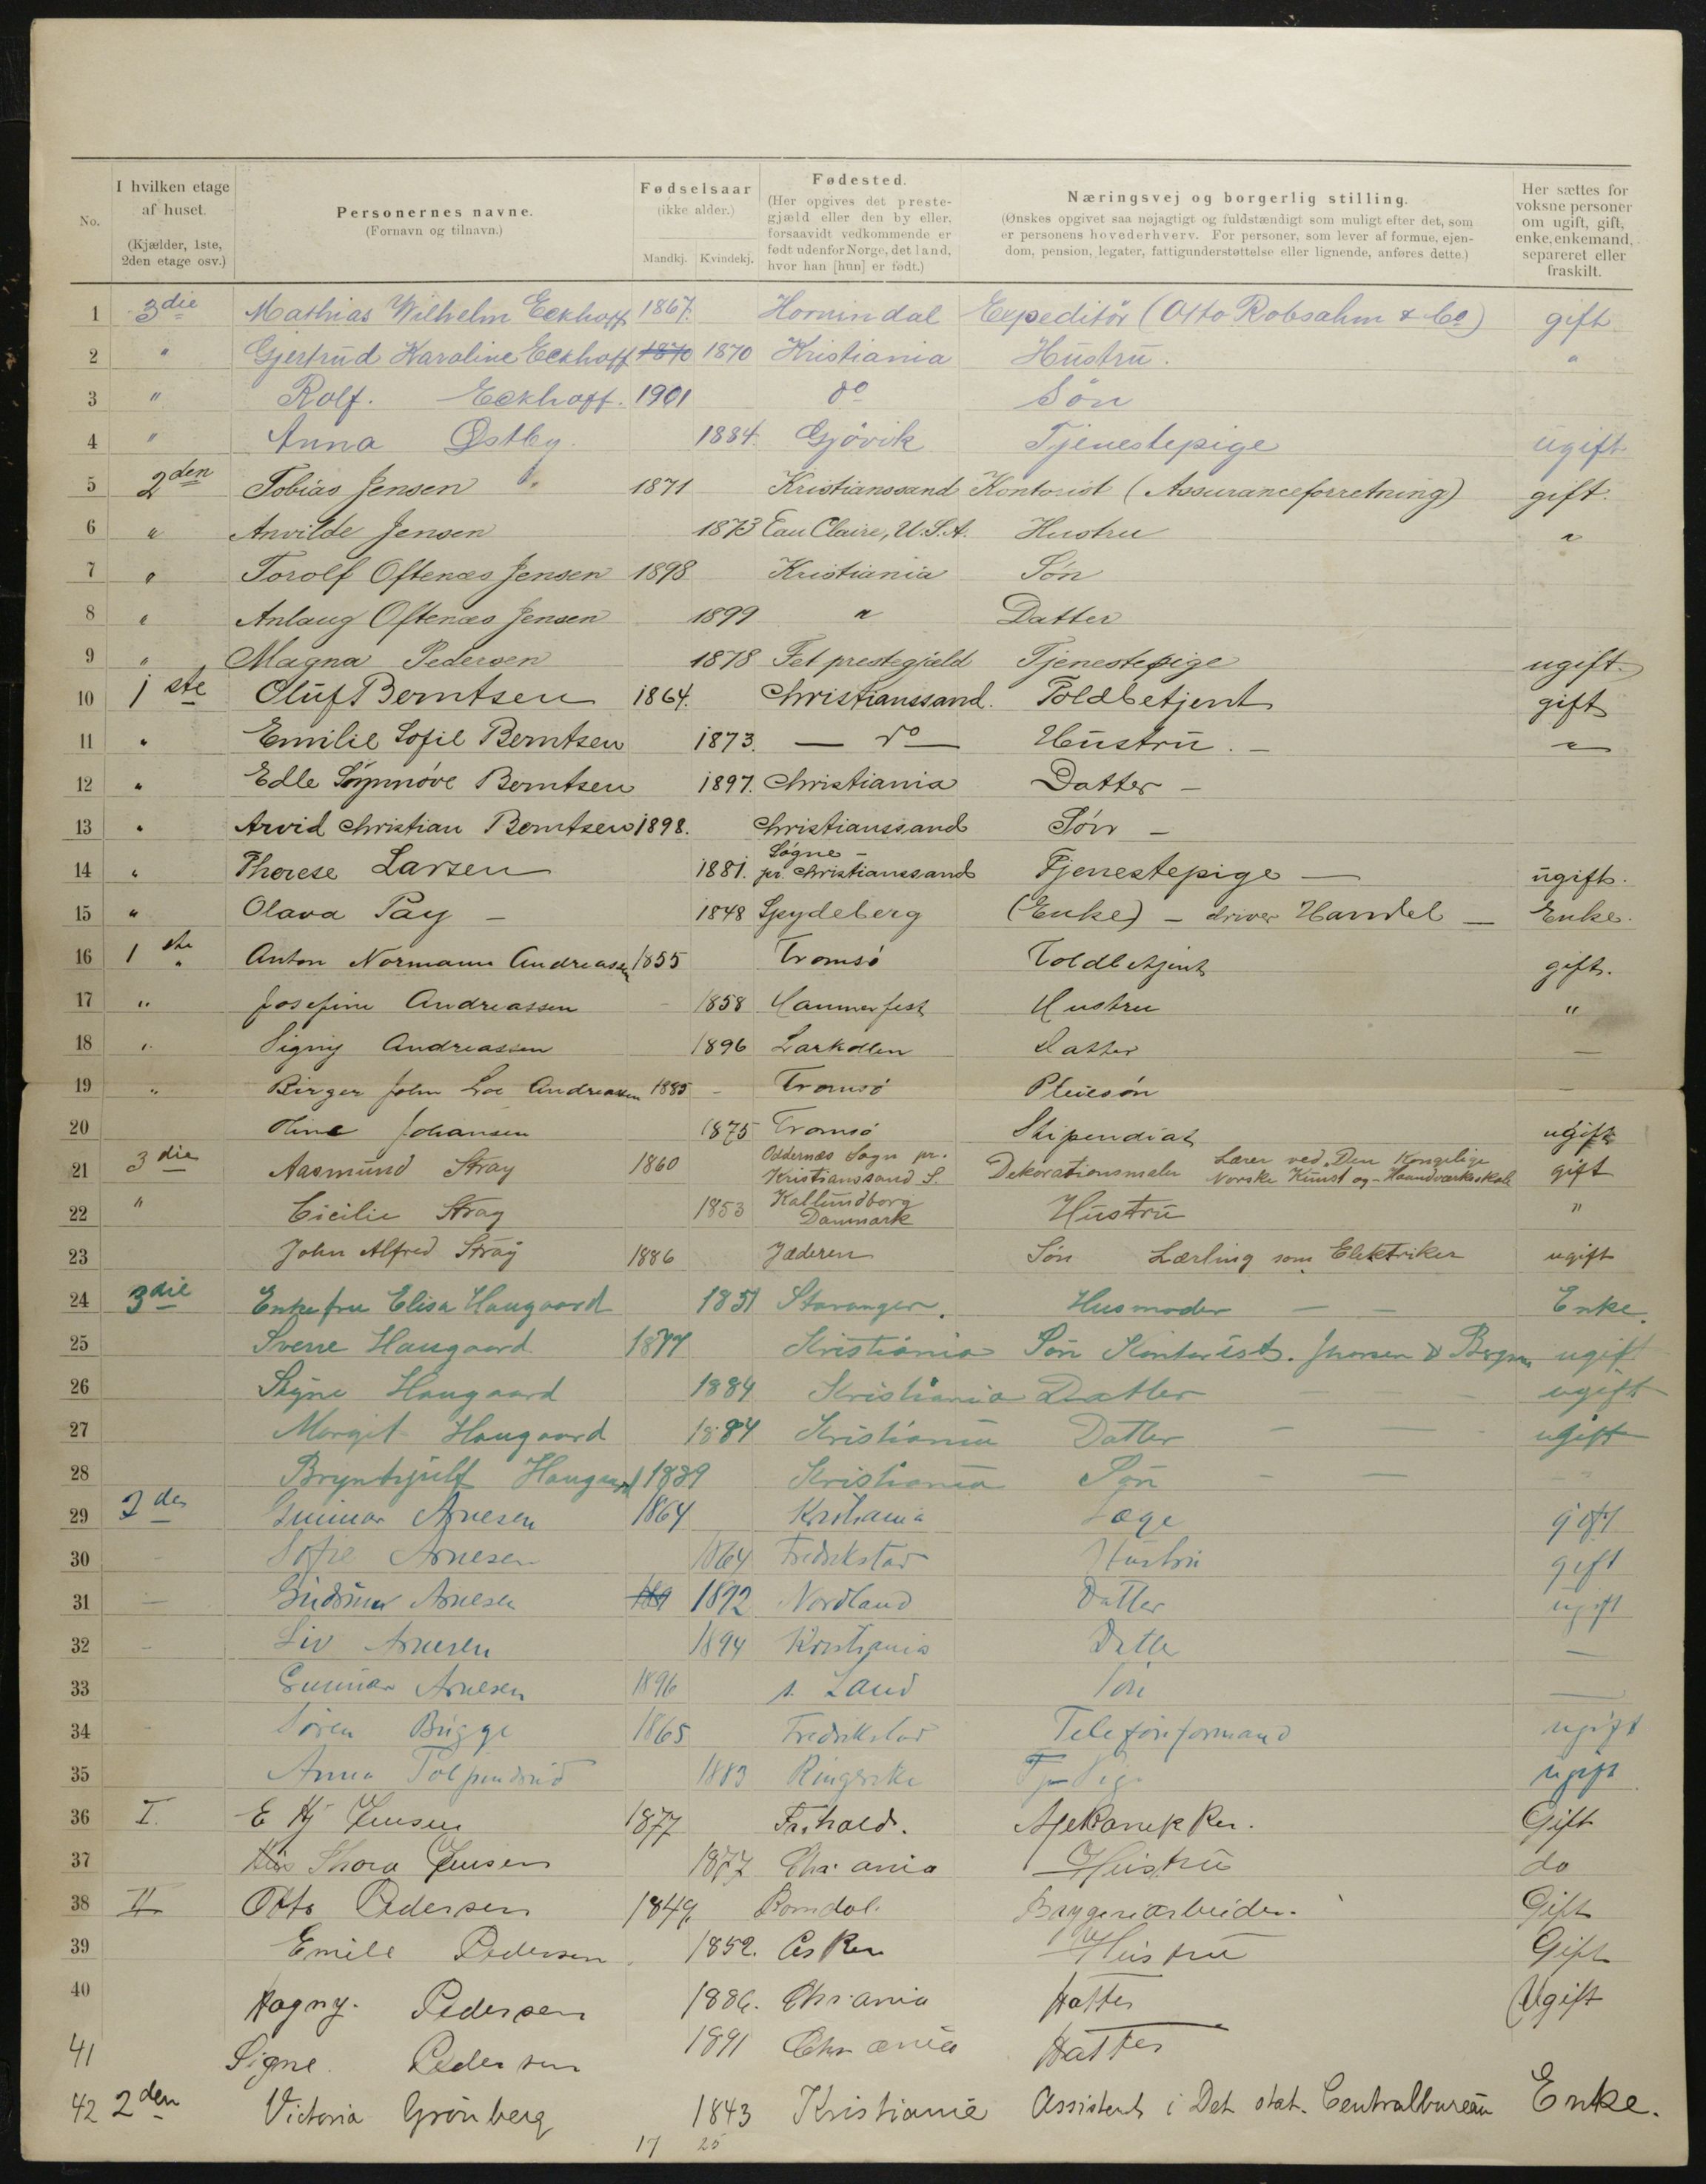 No.
I hvilken etage af huset.
(Kjælder, 1ste, 2den etage osv.)
Personernes navne.
(Fornavn og tilnavn.)
Fødselsaar
(ikke alder.)
Mandkj. Kvindekj.
Fødested.
(Her opgives det preste-
gjæld eller den by eller,
forsaavidt vedkommende er
født udenfor Norge, det land,
hvor han [hun] er født.)
Næringsvej og borgerlig stilling.
(Ønskes opgivet saa nøjagtigt og fuldstændigt som muligt efter det, som
er personens hovederhverv. For personer, som lever af formue, ejen-
dom, pension, legater, fattigunderstøttelse eller lignende, anføres dette.)
Her sættes for
voksne personer
om ugift, gift,
enke, enkemand,
separeret eller
fraskilt.
1 3die Mathias Wilhelm Eckhoff 1867. Hornindal Expeditör (Otto Robsahm & Co) gift
2 " Gjertrud Karoline Eckhoff 1870 1870 Kristiania Hustru. "
3 " Rolf. Eckhoff. 1901 do Sön
4 " Anna Østby. 1884. Gjövik Tjenestepige ugift
5 2den Tobias Jensen 1871 Kristianssand Kontorist (Assuranceforretning) gift.
6 " Anvilde Jensen 1873 Eau Claire, U.S.A. Hustru "
7 " Torolf Oftenæs Jensen 1898 Kristiania Sön
8 " Anlaug Oftenæs Jensen 1899 " Datter
9 " Magna Pedersen 1878 Fet prestegjæld Tjenestepige ugift.
10 1ste Oluf Berntsen 1864. Christianssand. Toldbetjent gift
11 " Emilie Sofie Berntsen 1873. — do — Hustru. — "
12 " Edle Synnöve Berntsen 1897. Christiania Datter —
13 " Arvid Christian Berntsen 1898. Christianssand Sön —
14 " Therese Larsen 1881. Søgne - pr. Christianssand Tjenestepige — ugift.
15 " Olava Pay — 1848 Spydeberg (Enke) — driver Handel — Enke.
16 1ste " Anton Normann Andreassen 1855 Tromsö Toldbetjent gift.
17 " Josefine Andreassen 1858 Hammerfest Hustru "
18 " Signy Andreassen 1896 Larkollen Datter —
19 " Birger John Andreassen 1885 - Tromsö Pleiesön —
20 Johansen 1875 Tromsö Stipendiat ugift
21 3die Aasmund Stray 1860 Oddernæs Sogn pr. Kristianssand S. Dekorationsmaler Lærer ved Den Kongelige Norske Kunst og - Haandværksskole gift
22 " Cicilie Stray 1853 Kallundborg Danmark Hustru "
23 John Alfred Stray 1886 Jæderen Sön Lærling som Elektriker ugift
24 3die Enkefru Elisa Haugaard 1851 Stavanger. Husmoder — — Enke.
25 Sverre Haugaard 1877 Kristiania Sön Kontorist. ugift
26 Signe Haugaard 1884 Kristiania Datter ugift
27 Margit Haugaard 1884 Kristiania Datter — — ugift
28 Brynhjulf Haugaard 1889 Kristiania Sön — —
29 2den Gunnar Arnesen 1864 Kristiania Læge gift
30 Sofie Arnesen 1864 Fredrikstad Hustru gift
31 — Gudrun Arnesen 1892 Nordland Datter ugift
32 Liv Arnesen 1894 Kristiania Datter —
33 Gunnar Arnesen 1896 s. Land Sön —
34 Sören Bugge 1865 Fredrikstad Telefonformand ugift
35 Anna 1883 Ringerike ugift
36 I. E Hj Jensen 1877 Fr.hald. Mekaniker. Gift
37 Thora Jensen 1877 Chr.ania Hustru do
38 II Otto Pedersen 1849 Romdal. Bryggeriarbeider. Gift
39 Emile Pedersen 1852. Asker Hustru Gift
40 Dagny. Pedersen 1886. Chr.ania Datter Ugift
41 Signe. Pedersen 1891 Chr.ania Datter
42 2den Victoria Grönberg 1843 Kristiania Assistent i Det stat. Centralbureau Enke.
17 25